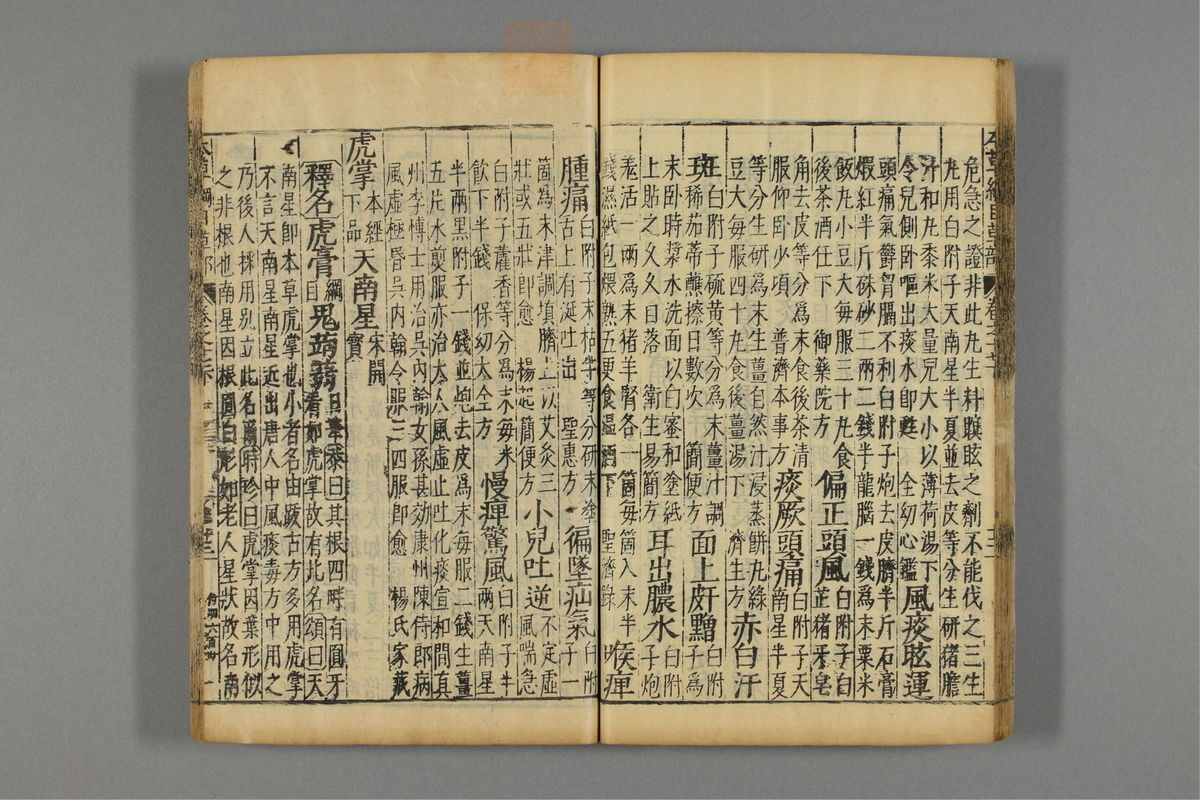 危急之證非此丸生料瞑眩之劑不能伐之三生
丸用白附子天南星半夏並去皮等分生研猪膽
汁和丸黍米大量兒大小以薄荷湯下
令兒側卧嘔出痰水即甦 全幼心鑑 風痰眩運
頭痛氣鬱胷膈不利白附子炮去皮臍半斤石膏
煆紅半斤硃砂二兩二錢半龍腦一錢爲末粟米
飯丸小豆大每服三十丸食
後茶酒任下 御藥院方 偏正頭風 白附子白芷猪牙皂
角去皮等分爲末食後茶清
服仰卧少頃 普濟本事方 痰厥頭痛 白附子天南星半夏
等分生研爲末生薑自然汁浸蒸餅丸綠
豆大每服四十丸食後薑湯下 濟生方 赤白汗
斑 白附子硫黄等分爲末薑汁調
稀茄蒂蘸擦日數次 簡便方 面上皯黯 白附子爲
末卧時漿水洗面以白蜜和塗紙
上貼之久久自落 衛生易簡方 耳出膿水 白附子炮
羗活一兩爲末猪羊腎各一箇每箇入末半
錢濕紙包煨熟五更食溫酒下 聖濟錄 喉痹
腫痛 白附子末枯礬等分研末塗
舌上有涎吐出 聖惠方 偏墜疝氣 白附子一
箇爲末津調填臍上以艾灸三
壯或五壯即愈 楊起簡便方 小兒吐逆 不定虛風喘急
白附子藿香等分爲末每米
飲下半錢 保幼大全方 慢痹驚風 白附子半兩天南星
半兩黑附子一錢並炮去皮爲末每服二錢生薑
五片水煎服亦治大人風虛止吐化痰宣和間真
州李博士用治吳內翰女孫甚効康州陳侍郎病
風虛極昏吳內翰令服三四服即愈 楊氏家藏
虎掌 本經下品 天南星 宋開寶
釋名 虎膏 綱目 鬼蒟蒻 日華 恭曰其根四畔有圓牙
看如虎掌故有此名頌曰天
南星即本草虎掌也小者名由跋古方多用虎掌
不言天南星南星近出唐人中風痰毒方中用之
乃後人採用别立此名爾時珍曰虎掌因葉形似
之非根也南星因根圓白形如老人星狀故名南